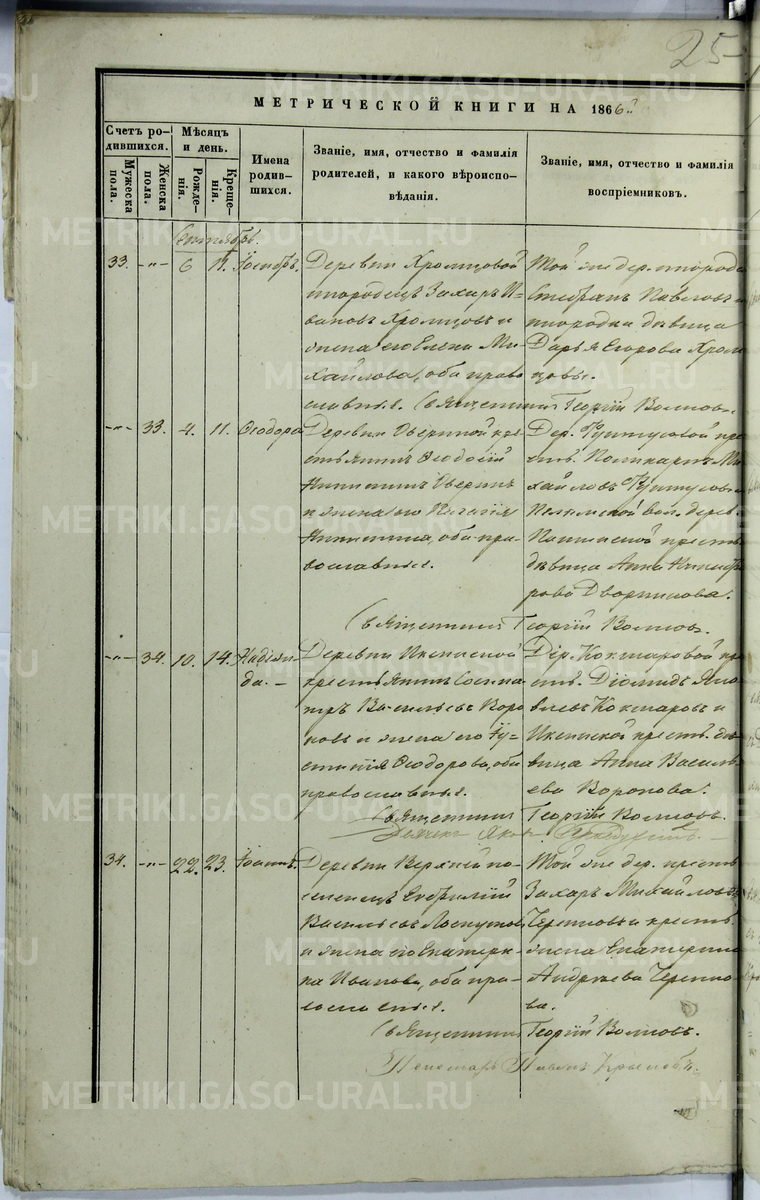 25
МЕТРИЧЕСКОЙ КНИГИ НА 1866
Счетъ родившихся.
Мужеска пола.
Женска пола.
Мѣсяцъ и день.
Рожденія.
Крещенія.
Имена родившихся.
Званіе, имя, отчество и фамилія родителей, и какого вѣроисповѣданія.
Званіе, имя, отчество и фамилія воспріемниковъ.
Сентябрь.
33. -„- 6 Іосифъ.
Деревни Хромцовой
инородецъ Захаръ И-
вановъ Хромцовъ и
жена его Елена Ми-
хайлова, оба право-
славные.
Той же дер. инородецъ
Стефанъ Павловъ и
инородка дѣвица
Дарья Егорова Хром-
цовы.
Священникъ Георгій Волковъ.
-„- 33. 4. 11. Ѳеодора
Деревни Овериной кре-
стьянинъ Ѳеодосій
Никитинъ Оверинъ
и жена его Пелагія
Никитина, оба пра-
вославные.
Дер.
Поликарпъ Ми-
хайловъ
Пелымской вол. дерев.
крест.
дѣвица Анна Никифо-
рова Дворникова.
Священникъ Георгій Волковъ.
-„- 34. 10. 14. Надѣж-
да. -
Деревни Икснской
крестьянинъ Сосипа-
тръ Васильевъ Воро-
новъ и жена его Іу-
стинія Ѳеодорова, оба
православные.
Дер. Кокшаровой кре-
ст. Діомидъ Яко-
влевъ Кокшаровъ и
Икснской крест. дѣ-
вица Анна Василь-
ева Воронова.
Священникъ Георгій Волковъ.
Дьячекъ Яковъ
34. -„- 22. 23. Іоаннъ.
Деревни Верхней по-
селенецъ
Васильевъ Лоскутовъ
и жена его Екатери-
на Иванова, оба пра-
вославные.
Той же дер. крест.
Захаръ Михайловъ
Черепковъ и крест.
жена Екатерина
Андреева Черепко-
ва.
Священникъ Георгій Волковъ.
Пономарь Павелъ
METRIKI.GASO-URAL.RU